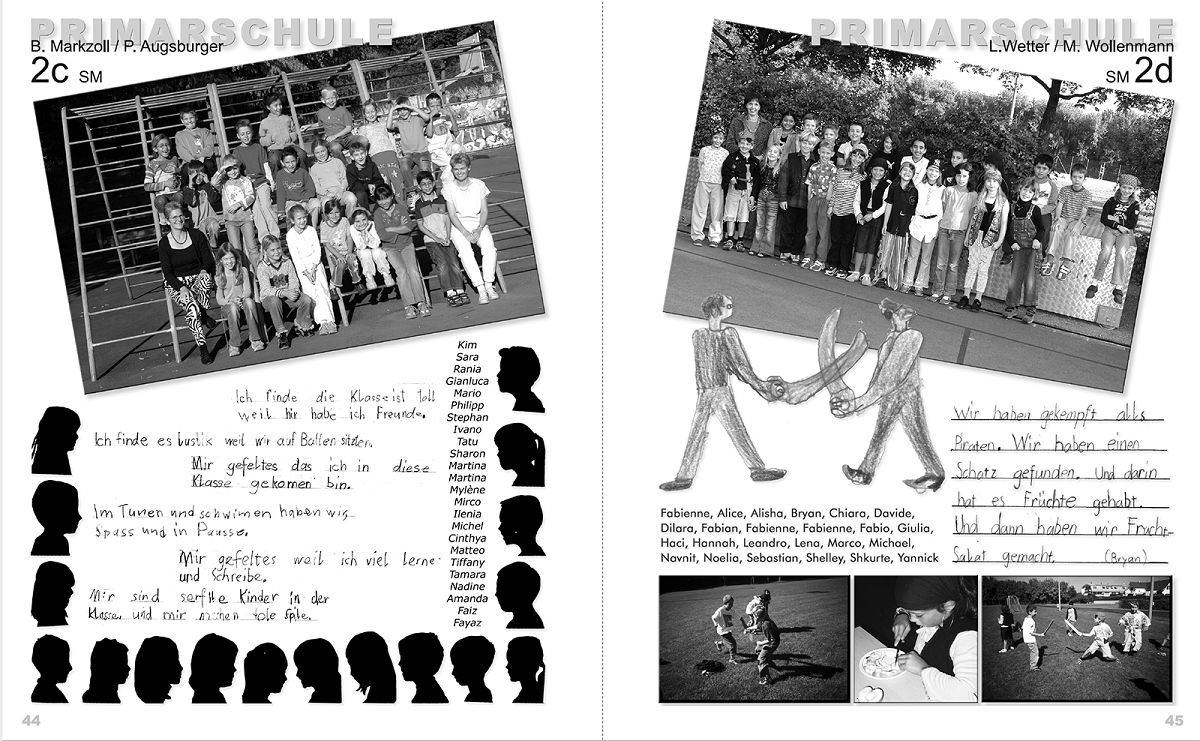 PRIMARSCHULE
B. Markzoll / P. Augsburger
2c SM
Kim
Sara
Rania
Gianluca
Mario
Philipp
Stephan
Ivano
Tatu
Sharon
Martina
Martina
Mylène
Mirco
Ilenia
Michel
Cinthya
Matteo
Tiffany
Tamara
Nadine
Amanda
Faiz
Fayaz
Ich finde die Klasse ist toll
weil hir habe ich Freunde.
Ich finde es lustik weil wir auf Ballen sitzten.
Mir gefeltes das ich in diese
Klasse gekomen bin.
Im Turnen und schwimen haben wir
Spass und in Pausse.
Mir gefeltes weil ich viel lerne
und Schreibe.
Mir sind Kinder in der
Klasse und mir tole
44
PRIMARSCHULE
L.Wetter / M. Wollenmann
SM 2d
Wir haben gekempft alls
Piraten. Wir haben einen
Schatz gefunden. Und darin
hat es Früchte gehabt.
Und dann haben wir Frucht-
Salat gemacht. (Bryan)
Fabienne, Alice, Alisha, Bryan, Chiara, Davide,
Dilara, Fabian, Fabienne, Fabienne, Fabio, Giulia,
Haci, Hannah, Leandro, Lena, Marco, Michael,
Navnit, Noelia, Sebastian, Shelley, Shkurte, Yannick
45